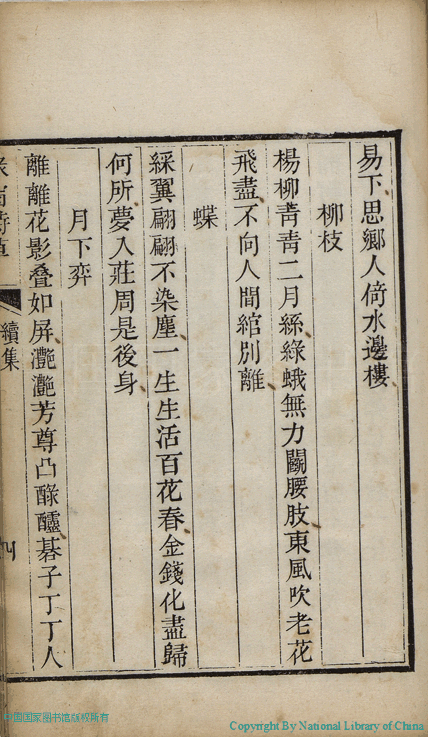 易下思鄉人倚水邊樓
柳枝
楊柳青青二月絲綠蛾無力鬬腰肢東風吹老花
飛盡不向人間綰別離
蝶
綵翼翩翩不染塵一生生活百花春金錢化盡歸
何所夢入莊周是後身
月下弈
離離花影叠如屏灧灧芳尊凸醁醽碁子丁丁人
續集
中国国家图书馆版权所有
Copyright By National Library of China